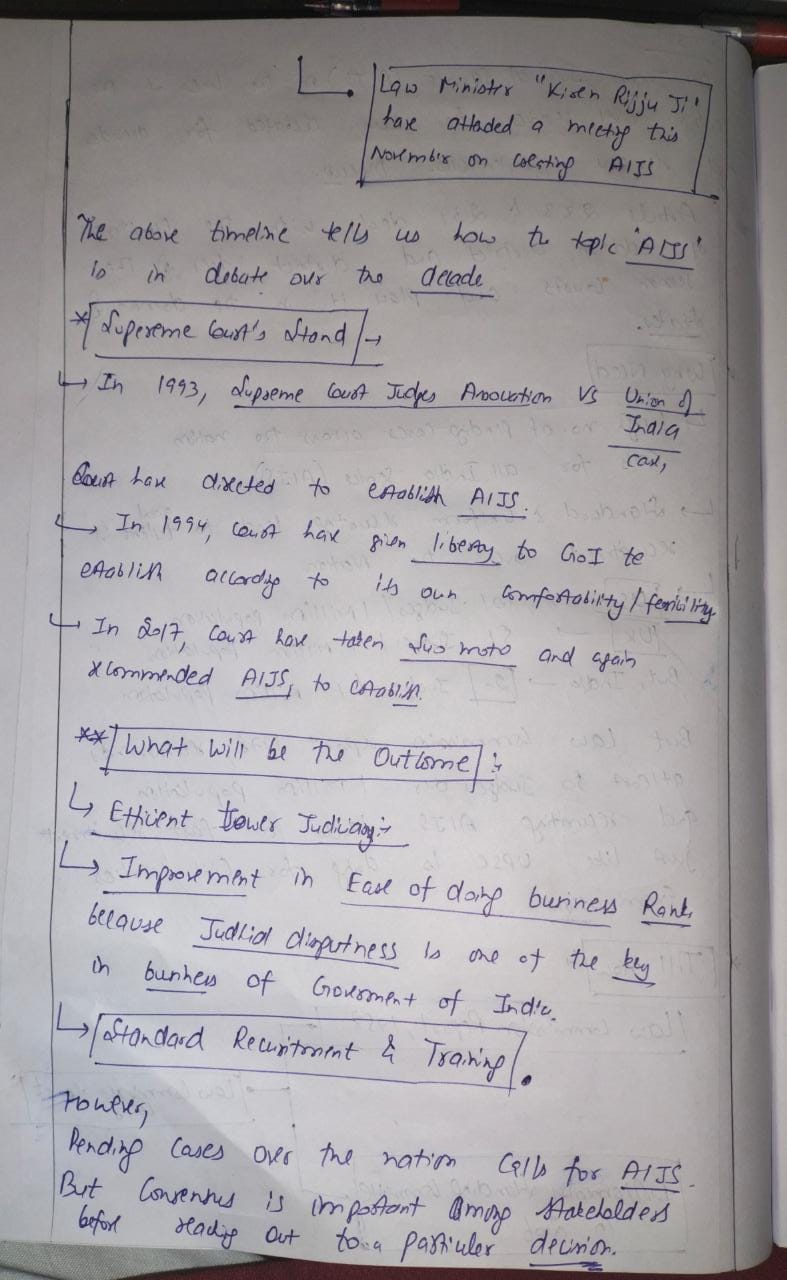 Law Minister "Kiren Rijju Ji"
have attaded a meeting this
November on creating AIJS
The above timeline tells us how the topic "AIJS"
is in debate over the decade
* Supereme Court's Stand →
↳ In 1993, Supreme Court Judges Association VS Union of
India
case,
Court have directed to establish AIJS.
↳ In 1994, court have given liberty to GoI to
establish according to its own comfortability / fesibility
↳ In 2017, court have taken Suo moto and again
recommended AIJS, to establish.
** What will be the Outcome :-
↳ Efficent Lower Judiciary :-
↳ Improvement in Ease of doing business Rank
because Judicial disputness is one of the key
in business of Goverment of India.
↳ Standard Recuritment & Training.
However,
Pending cases over the nation calls for AIJS.
But Consensus is important among stakeholders
before reading out to a particuler decision.